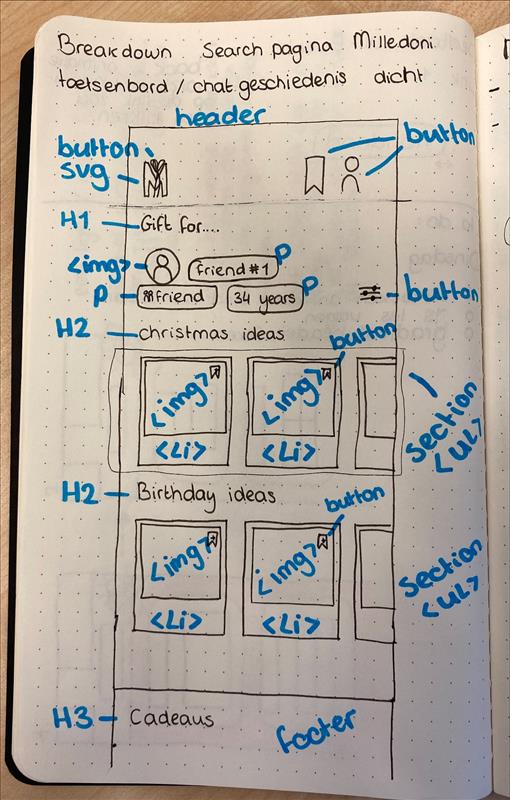 Breakdown Search pagina Milledoni
toetsenbord / chat.geschiedenis dicht
header
button
button
svg
H1 Gift for....
<img> friend #1 P
P friend 34 years P
button
H2 christmas ideas
button
<img> <img>
<Li> <Li>
section
<UL>
H2 Birthday ideas
button
<img> <img>
<Li> <Li>
section
<UL>
H3 Cadeaus
footer